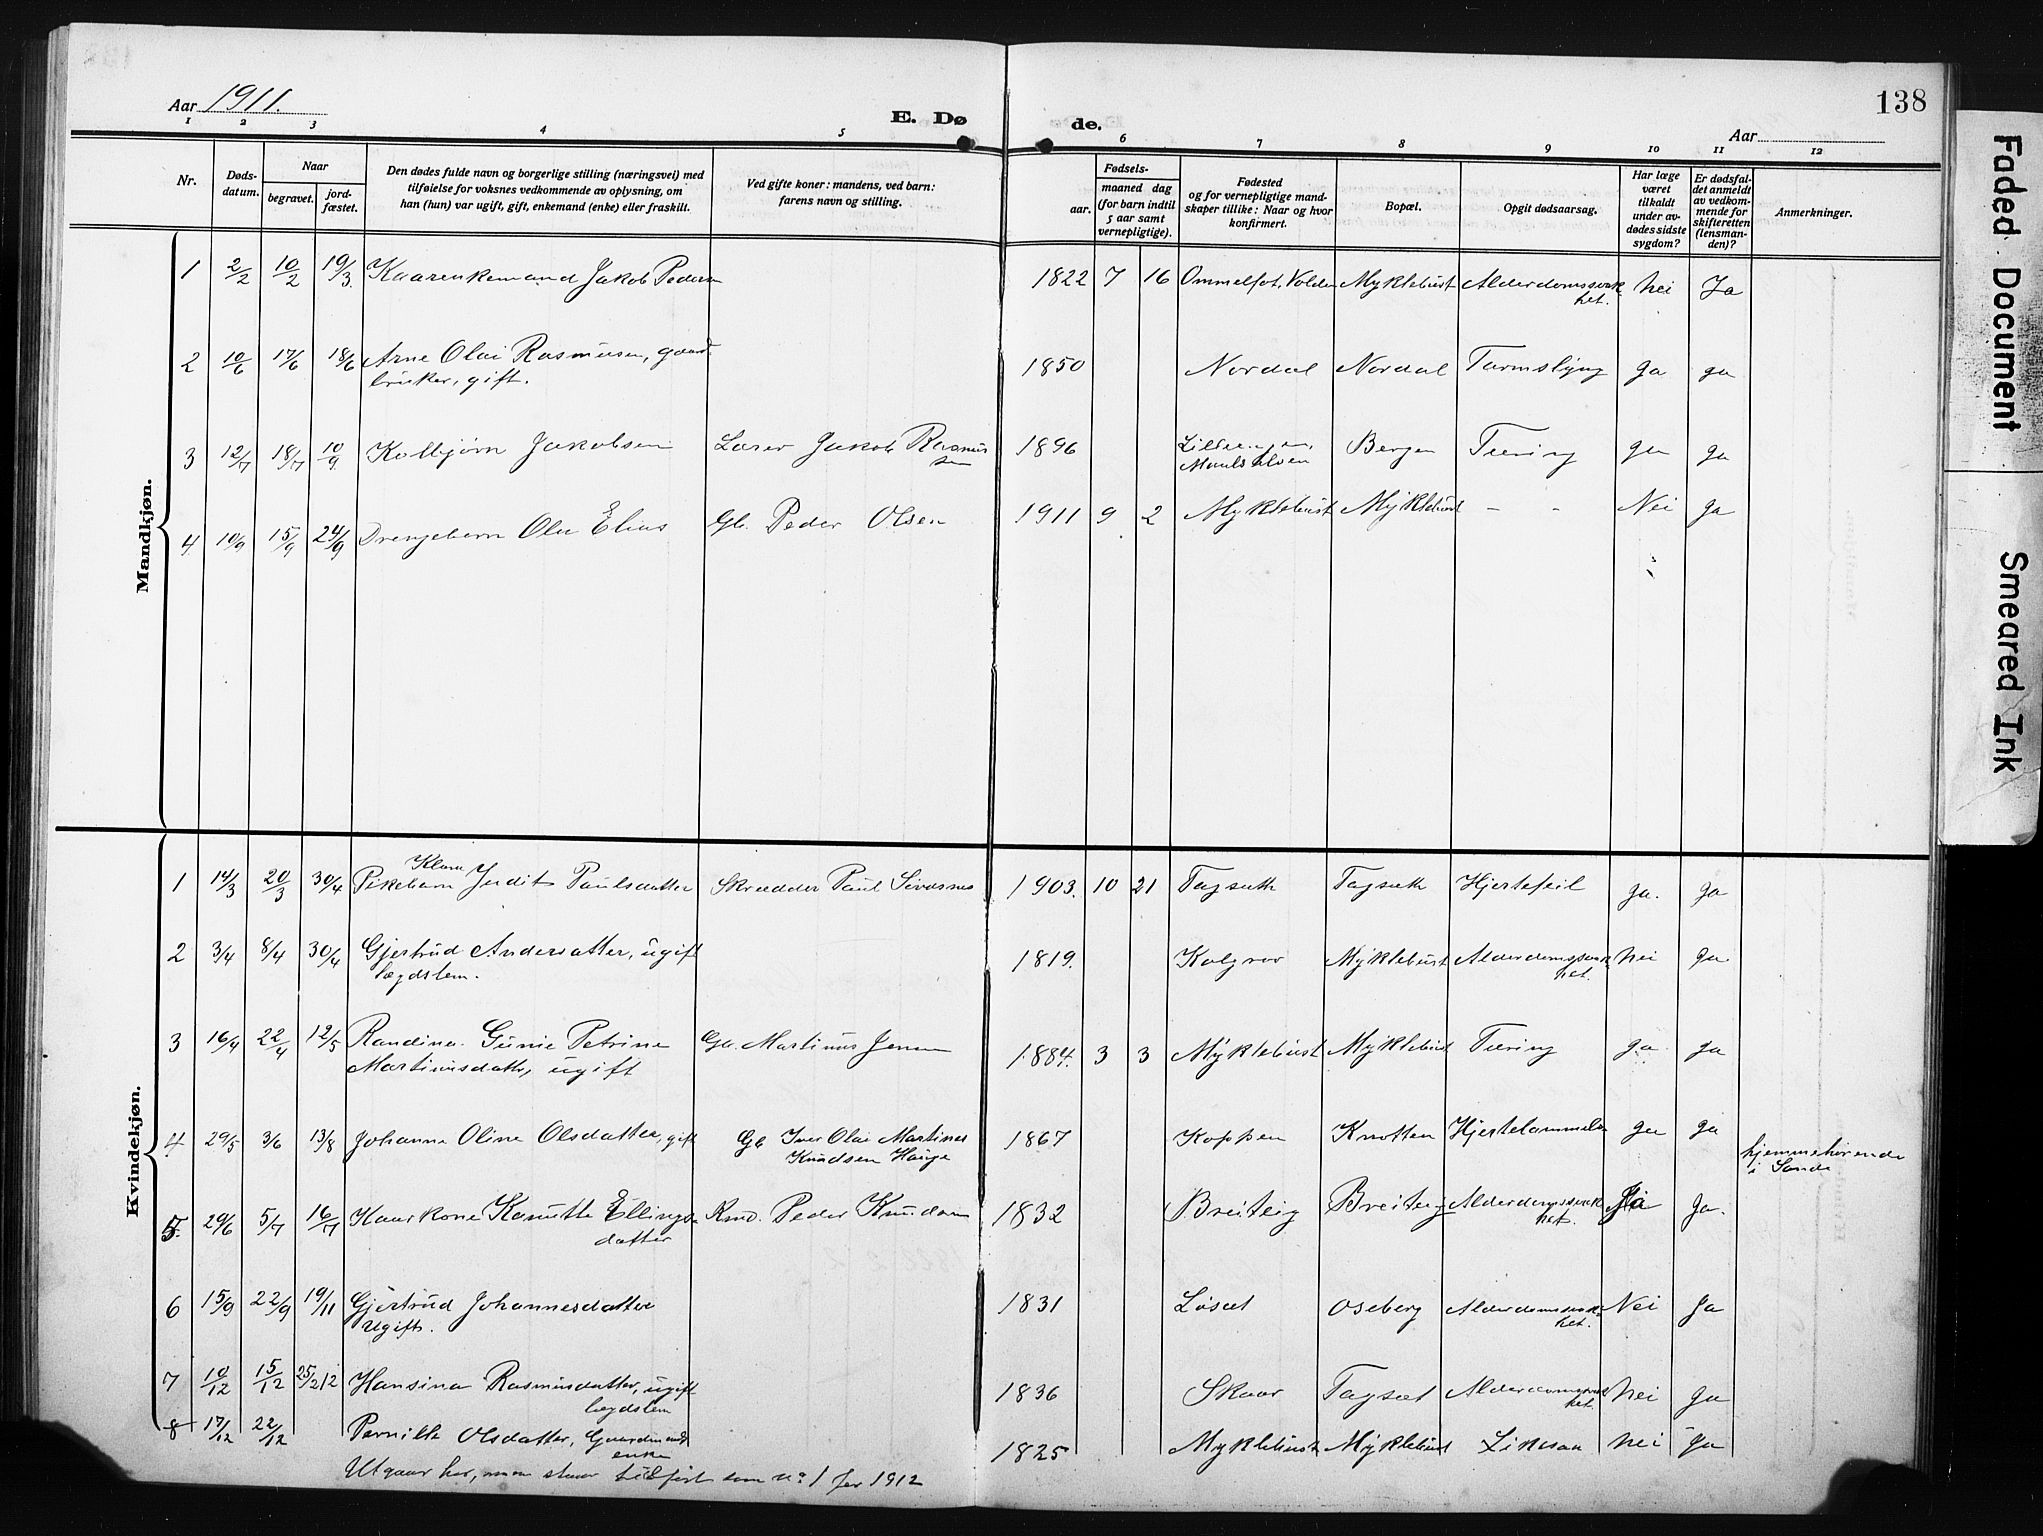 Aar 1911.
E. Døde.
138
Aar
1 2 3 4 5 6 7 8 9 10 11 12
Nr.
Døds-
datum.
Naar
begravet.
jord-
fæstet.
Den dødes fulde navn og borgerlige stilling (næringsvei) med
tilføielse for voksnes vedkommende av oplysning, om
han (hun) var ugift, gift, enkemand (enke) eller fraskilt.
Ved gifte koner: mandens, ved barn:
farens navn og stilling.
Fødsels-
aar.
maaned dag
(for barn indtil
5 aar samt
vernepligtige).
Fødested
og for vernepligtige mand-
skaper tillike: Naar og hvor
konfirmert.
Bopæl.
Opgit dødsaarsag.
Har læge
været
tilkaldt
under av-
dødes sidste
sygdom?
Er dødsfal-
det anmeldt
av vedkom-
mende for
skifteretten
(lensman-
den)?
Anmerkninger.
Mandkjøn.
1 2/2 10/2 19/3 Kaarenkemand Jakob Pedersen 1822 7 16 Ommelfot, Volden Myklebust Alderdomssvak- nei Ja
het.
2 10/6 17/6 18/6 Arne Olai Rasmusen, gaard- 1850 Nordal Nordal Tarmslyng ja ja
bruker, gift.
3 12/7 18/7 10/9 Kolbjørn Jakobsen Lærer Jakob Rasmus 1896 Bergen Tæring ja ja
sen
4 10/9 15/9 24/9 Drengebarn Ola Elias Gb. Peder Olsen 1911 9 2 Myklebust Myklebust - - Nei ja
Kvindekjøn.
Klara
1 14/3 20/3 30/4 Pikebarn Judit Paulsdatter Skrædder Paul Sivasnes 1903. 10 21 Tagsæth Tagsæth Hjertefeil ja. ja
2 3/4 8/4 30/4 Gjertrud Andersdatter, ugift 1819. Kolgrov Myklebust Alderdomssvak- nei ja
lægdslem. het.
3 16/4 22/4 12/5 Randina Gunie Petrine Gb. Martinus Jensen 1884. 3 3 Myklebust Myklebust Tæring ja ja
Martinusdatter, ugift
4 29/5 3/6 13/8 Johanne Oline Olsdatter, gift Gb Iver Olai Martinus 1867 Koppen Knotten Hjertelammelse ja ja hjemmehørende
Knudsen Hauge i Sande
5. 29/6 5/7 16/7 Kaarkone Kanutte Ellings- Kmd. Peder Knudsen 1832 Breiteig Breiteig Alderdomssvak- Ja ja.
datter het.
6 15/9 22/9 19/11 Gjertrud Johannesdatter 1831 Løset Oseberg Alderdomssvak- Nei Ja
Ugift. het.
7 10/12 15/12 25/2 12 Hansina Rasmusdatter, ugift 1836 Skaar Tagsæt Alderdomssvak- nei ja
lægdslem het.
8 17/12 22/12 Pernille Olsdatter, Gaardmands 1825 Myklebust Myklebust nei ja
enke
Utgaar her, men staar tilført som no 1 for 1912
Faded Document
Smeared Ink